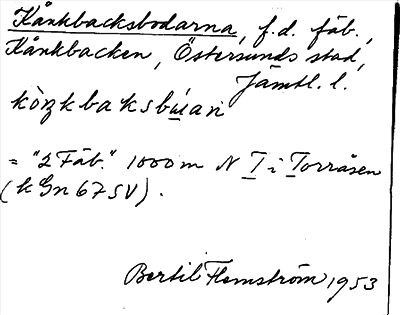 Kånkbacksbodarna, f.d. fäb.,
Kånkbacken, Östersunds stad,
Jämtl. l.
kòŋkbaksbúan
= "2 Fäb." 1000 m N I i Torråsen
(k Gn 67 SV).
Bertil Flemström 1953